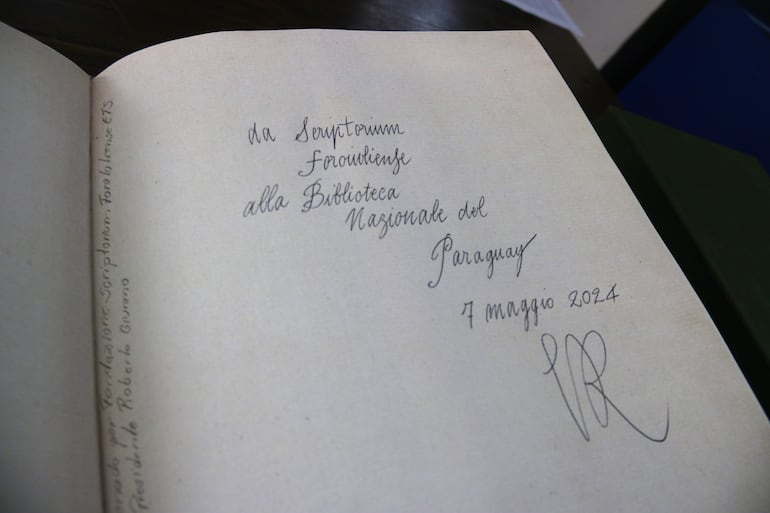 da Scriptorium
Foroiuliense
alla Biblioteca
Nazionale del
Paraguay
7 maggio 2024
por Fondazione Scriptorium Foroiuliense ETS
Presidente Roberto Giurano